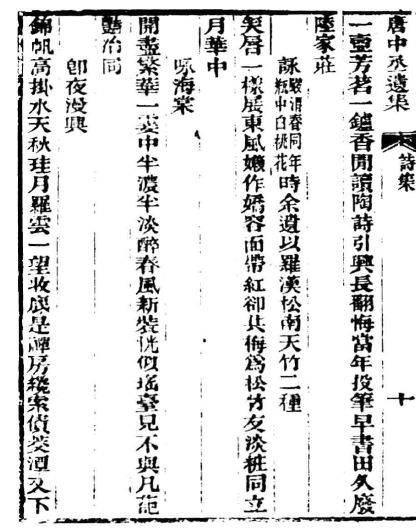 唐中丞遺集　詩集　十
一壺芳茗一鑪香閒讀陶詩引興長翻悔當年投筆早書田久廢
陸家莊
詠駿渭春同年瓶中白桃花時余遺以羅漢松南天竹二種
笑唇一樣展東風嬾作嬌容面帶紅卻共梅爲松竹友淡粧同立
月華中
咏海棠
開盡繁華一萼中半濃半淡醉春風新裝恍似瑤臺見不與凡葩
豔冶同
卽夜漫興
錦帆高掛水天秋珪月羅雲一望收底是禪房纔索債菱潭又下